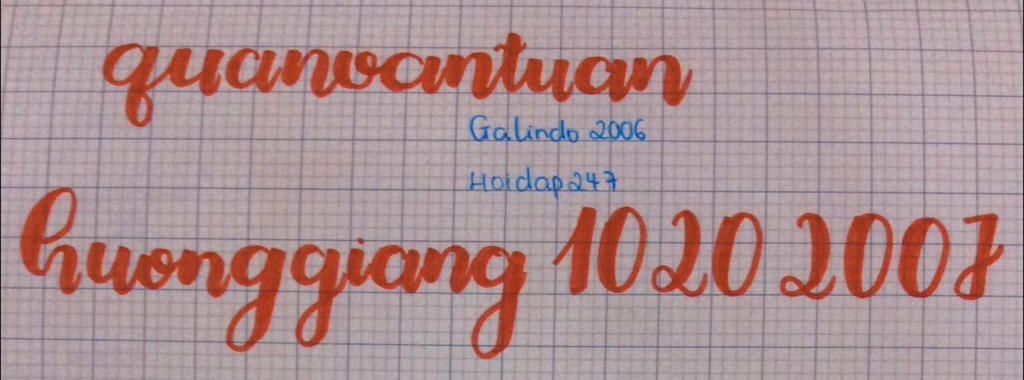 quanvantuan
Galindo 2006
Hoidap247
huonggiang 1020 2007